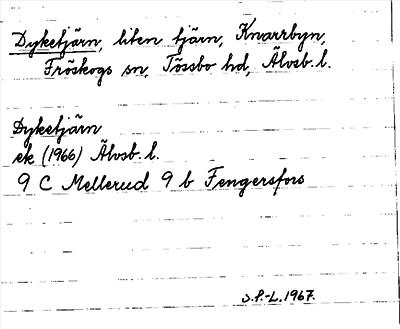 Dyketjärn, liten tjärn, Knarrbyn,
Fröskogs sn, Tössbo hd, Älvsb. l.
Dyketjärn
ek (1966) Älvsb. l.
9 C Mellerud 9 b Fengersfors
S.P.-L. 1967.